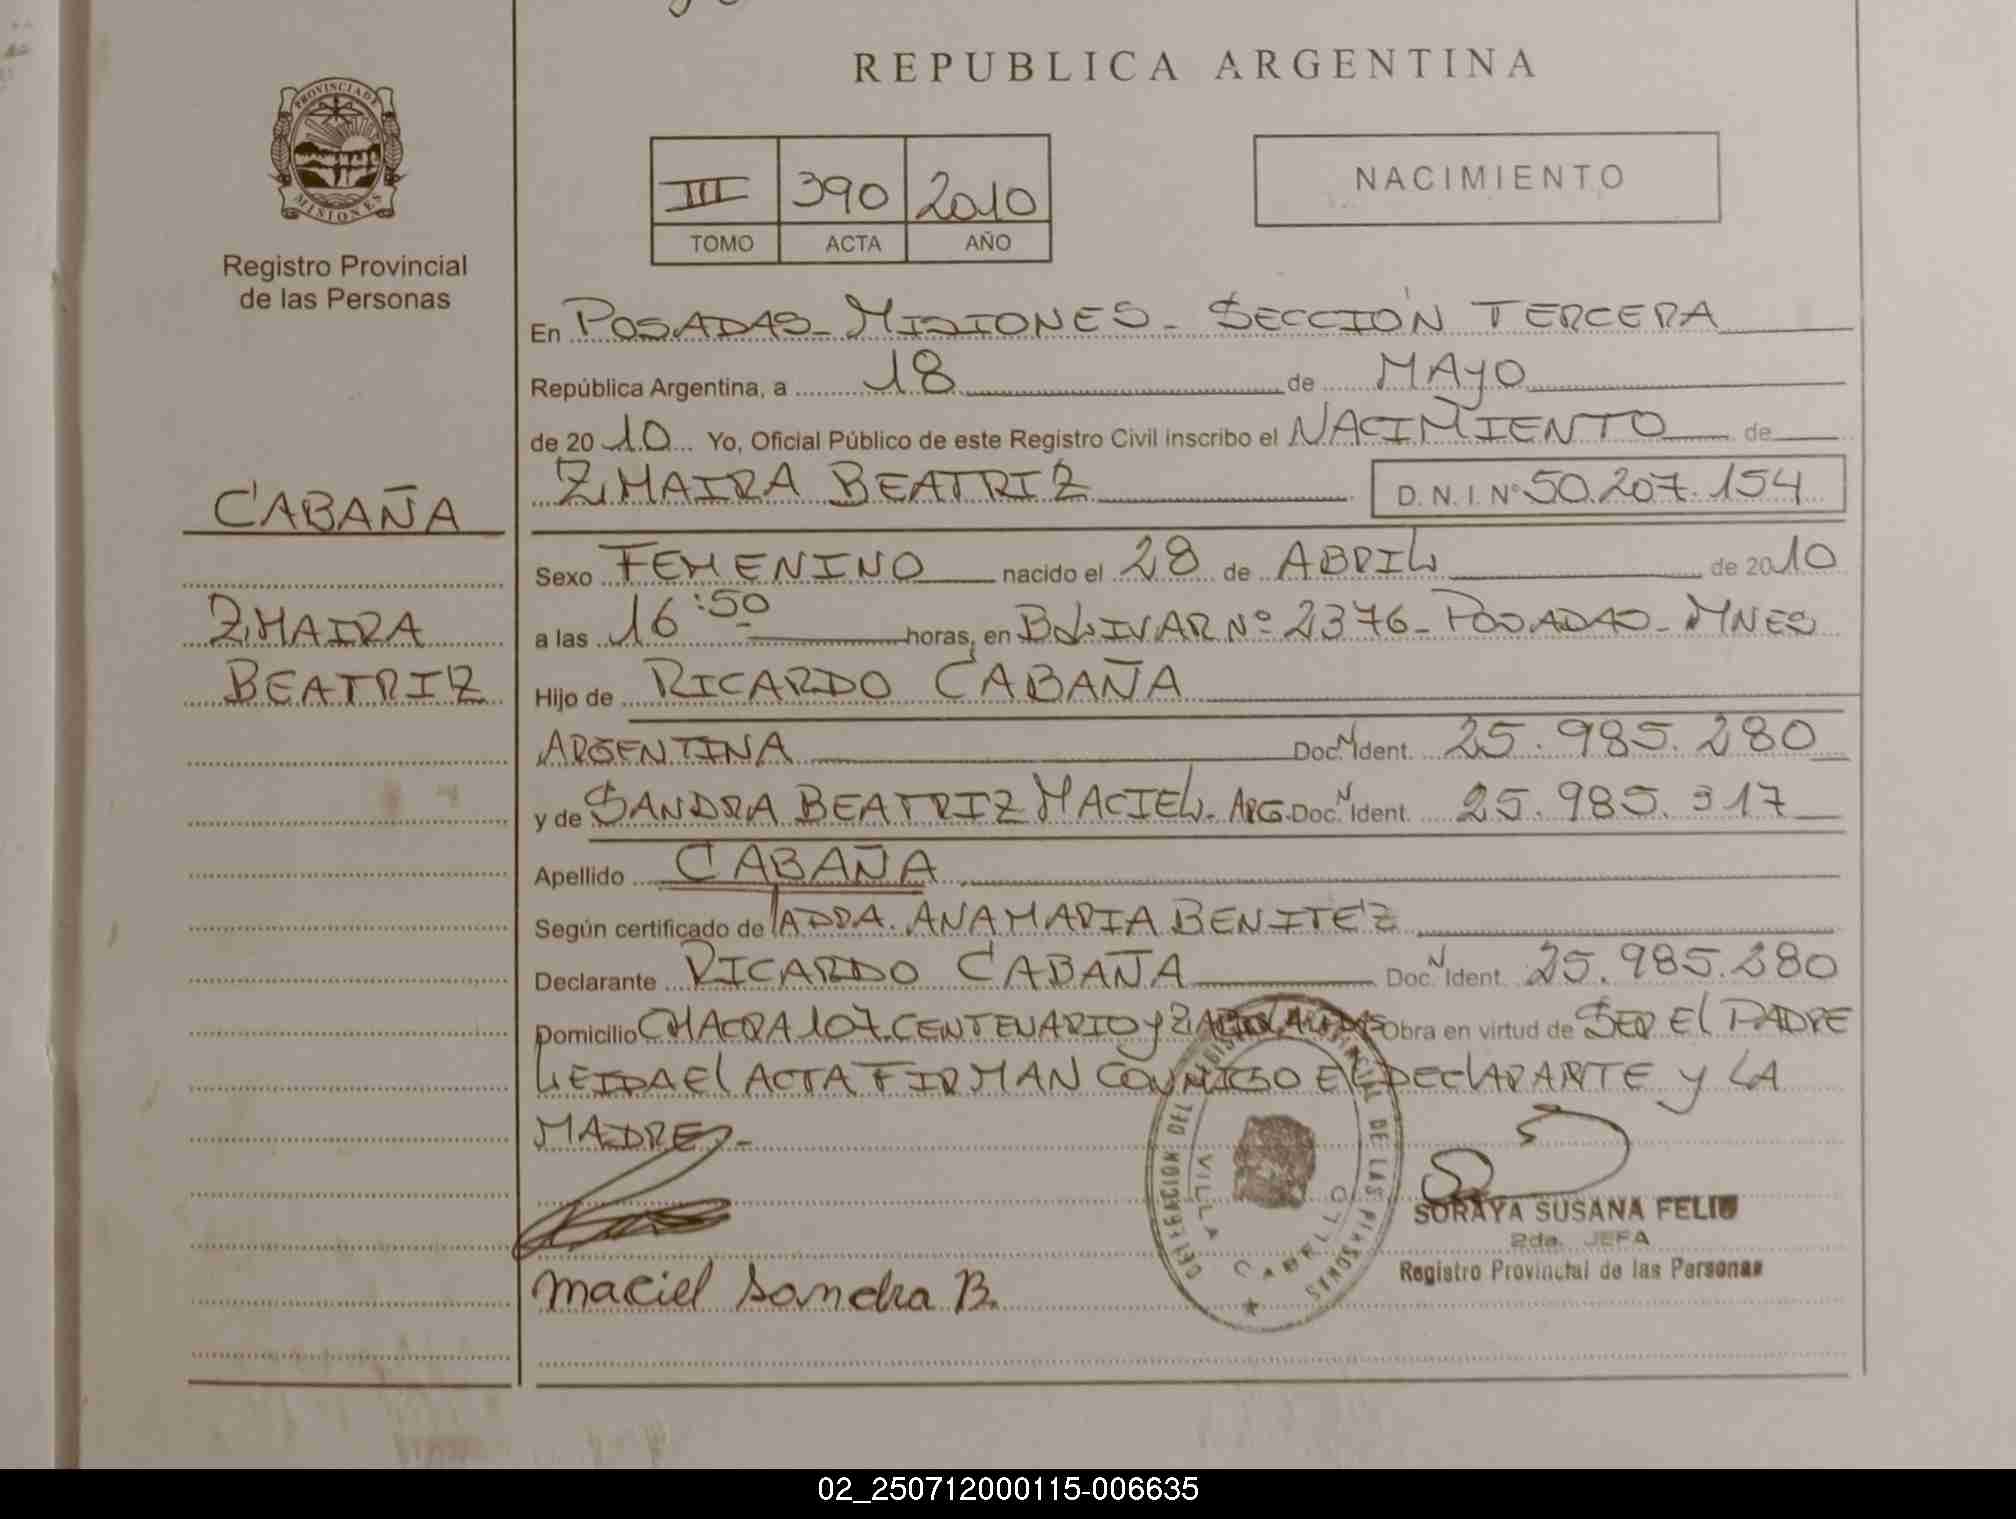 REPUBLICA ARGENTINA
PROVINCIA DE
MISIONES
Registro Provincial
de las Personas
III 390 2010
TOMO ACTA AÑO
NACIMIENTO
En POSADAS - MISIONES - SECCIÓN TERCERA
República Argentina, a 18 de MAYO
de 20 10 Yo, Oficial Público de este Registro Civil inscribo el NACIMIENTO de
ZMAIRA BEATRIZ D. N. I. Nº 50.207.154
CABAÑA
ZMAIRA
BEATRIZ
Sexo FEMENINO nacido el 28 de ABRIL de 2010
a las 16:50 horas, en BOLIVAR Nº 2376 - POSADAS - MNES
Hijo de RICARDO CABAÑA
ARGENTINA Doc. N Ident. 25.985.280
y de SANDRA BEATRIZ MACIEL. ARG. Doc. N Ident. 25.985.317
Apellido CABAÑA
Según certificado de LA DRA. ANA MARIA BENITEZ
Declarante RICARDO CABAÑA Doc. N Ident. 25.985.280
Domicilio CHACRA 107. CENTENARIO y Obra en virtud de SER El PADRE
LEIDA El ACTA FIRMAN CONMIGO El DEClARANTE y LA
MADRE -
DELEGACION DEL REGISTRO PROVINCIAL DE LAS PERSONAS
VILLA CABELLO
SORAYA SUSANA FELIU
2da. JEFA
Registro Provincial de las Personas
Maciel Sandra B.
02_250712000115-006635